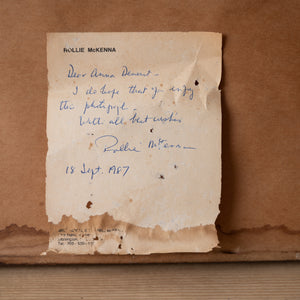 ROLLIE McKENNA
Dear Anna
I do hope that you enjoy
this photograph.
With all best wishes
Rollie McKenna
18 Sept. 1987